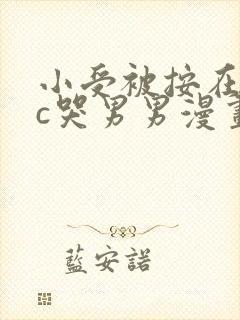 小受被按在
c哭男男漫畫
藍安諾